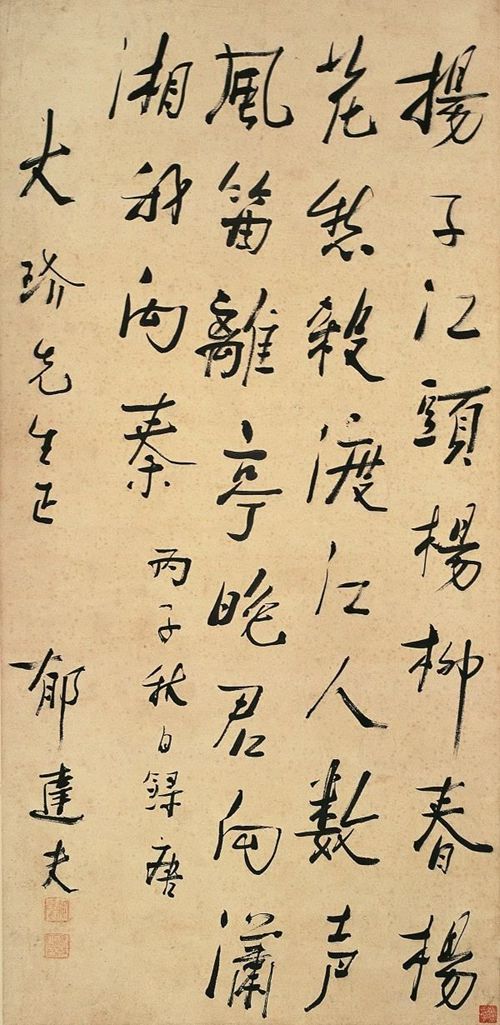 揚子江頭楊柳春楊
花愁殺渡江人数声
風笛離亭晚君向瀟
湘我向秦 丙子秋日録唐
大先生正 郁達夫